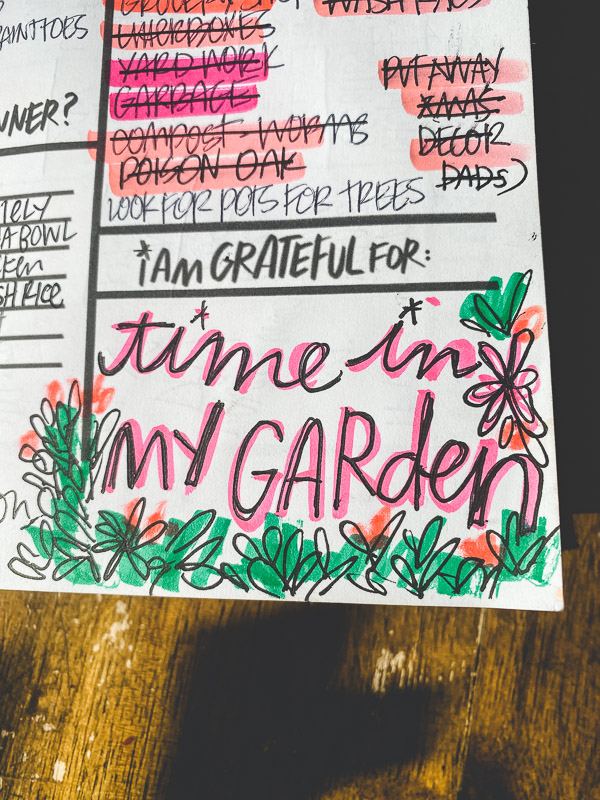 GROCERY SHOP WASH RAGS
LITTERBOXES
YARD WORK
GARBAGE
COMPOST - WORMS
POISON OAK
LOOK FOR POTS FOR TREES
PUT AWAY
XMAS
DECOR
DADS)
PAINT TOES
NNER?
TELY
A BOWL
KEN
SH RICE
ON
I AM GRATEFUL FOR:
time in
MY GARden